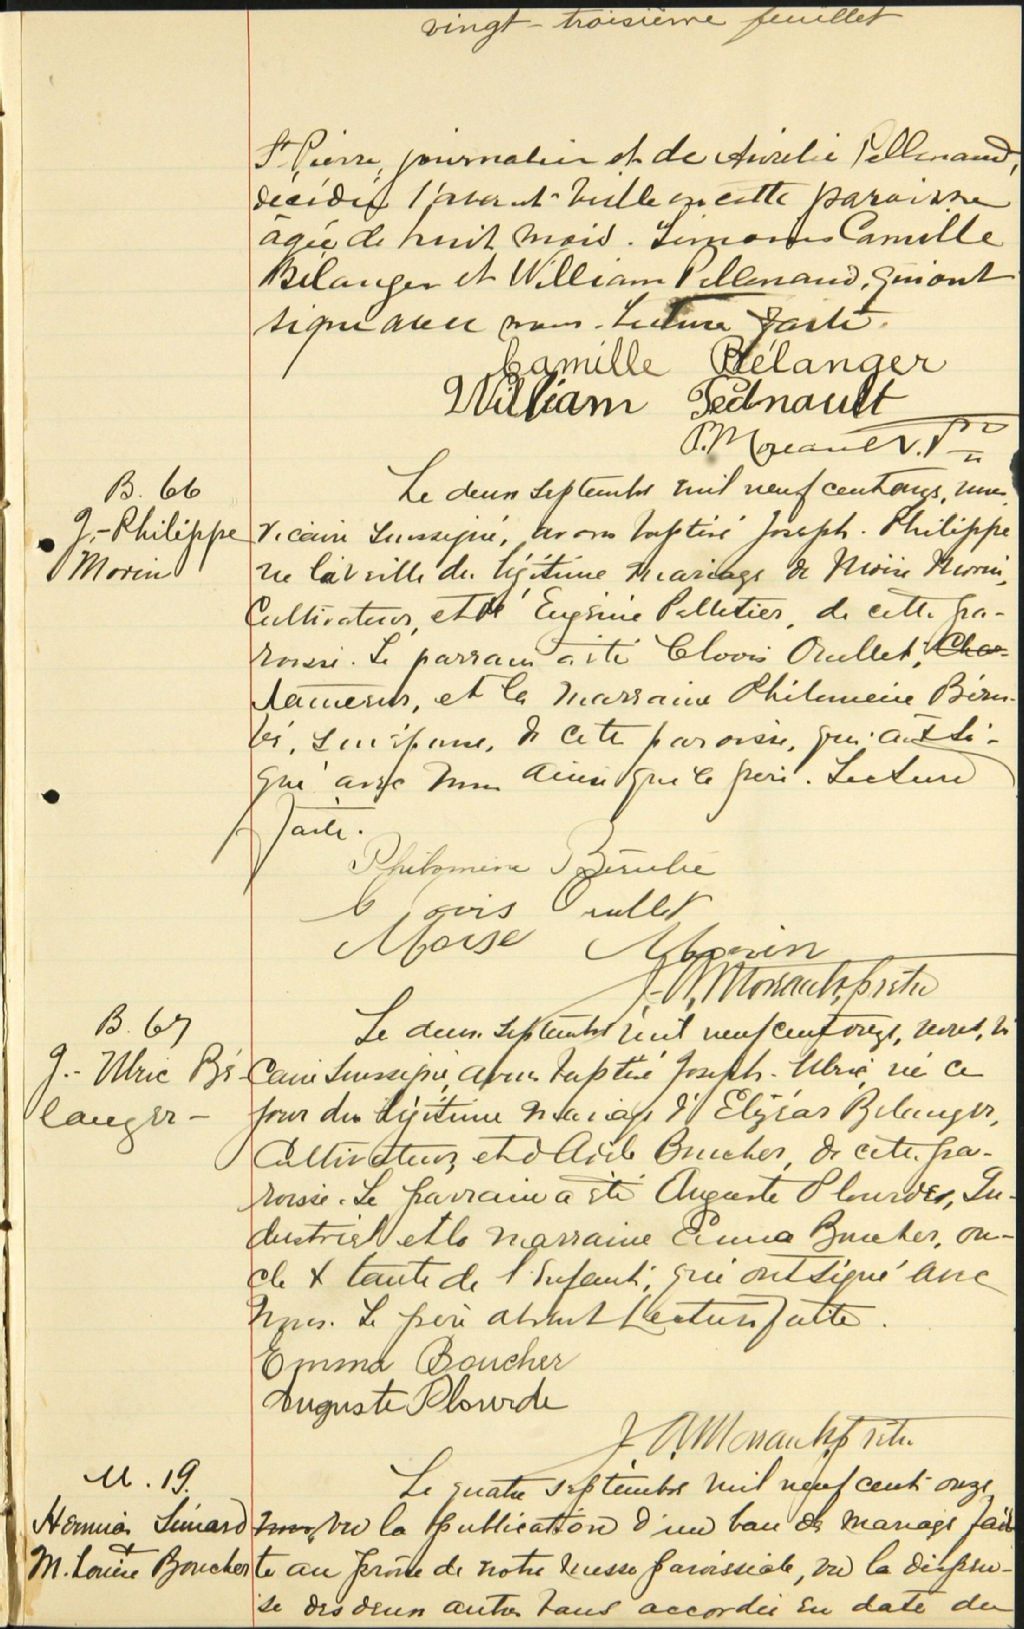 vingt-troisième feuillet
St Pierre, journalier et de Aurélie Pellenaud,
décédée l'avant-veille en cette paroisse
âgée de huit mois. Témoins Camille
Bélanger et William Pellenaud, qui ont
signé avec nous. Lecture faite.
Camille Bélanger
William Pednault
V. Ptre
B. 66
J.-Philippe
Morin
Le deux septembre mil neuf cent onze, nous
vicaire soussigné, avons baptisé Joseph-Philippe
né la veille du légitime mariage de Moïse Morin,
Cultivateur, et de Eugénie Pelletier, de cette pa-
roisse. Le parrain a été Clovis Ouellet,
et la marraine Philomène Béru-
bé, son épouse, de cette paroisse, qui ont si-
gné avec nous ainsi que le père. Lecture
faite.
Philomène Bérubé
Clovis Ouellet
Moïse Morin
J.-A. Moreault, ptre
B. 67
J.-Ulric Bé-
langer-
Le deux septembre mil neuf cent onze, nous, vi
caire soussigné, avons baptisé Joseph-Ulric, né ce
jour du légitime mariage d'Elzéar Belanger,
Cultivateur, et d Boucher, de cette pa-
roisse. Le parrain a été Auguste Plourde, In-
dustriel et la marraine Emma Boucher, on-
cle & tante de l'enfant, qui ont signé avec
nous. Le père absent Lecture faite.
Emma Boucher
Auguste Plourde
J. A. Morault, ptre
M. 19.
Simard
&
M. Louise Boucher
Le quatre septembre mil neuf cent onze
vu la publication d'un ban de mariage fai
te au prône de notre messe paroissiale, vu la dispen-
se des deux autres bans accordée en date du